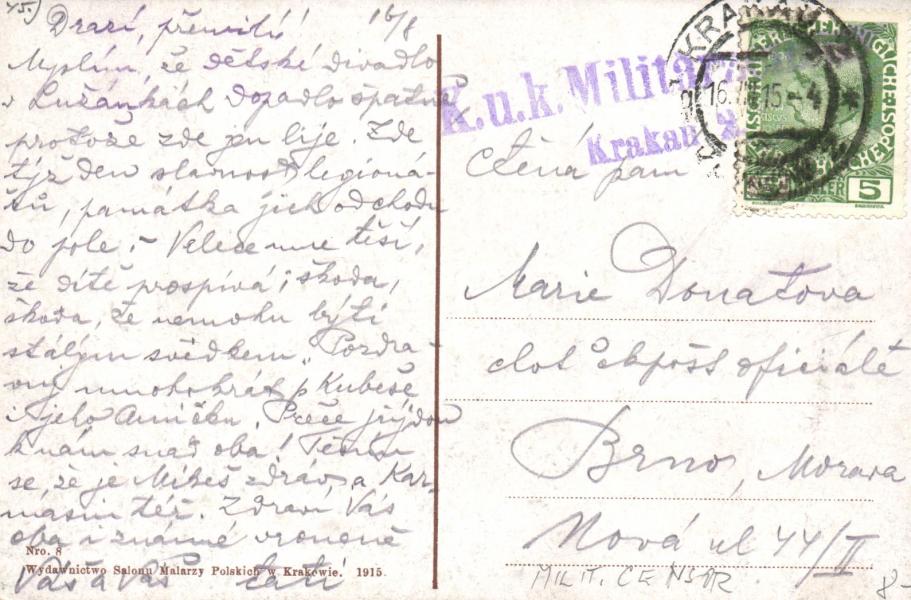 45.)
Drazí, přemilí! 16/8
Myslím, že dětské divadlo
v Lužánkách dopadlo špatně
protože zde jen lije. Zde
týž den slavnost legioná-
řů, památka jich odchodu
do pole. – Velece mne těší,
že dítě prospívá; škoda,
škoda, že nemohu býti
stálým svědkem. Pozdra-
vuj mnohokrát p Kubeše
i jeho Aničku. Přece přijdou
k nám snad oba! Těším
se, že je Mikeš zdráv a Kar-
masin též. Zdraví Vás
oba i známé vroucně
Váš a Váš tatí
Nro. 8
Wydawnictwo Salonu Malarzy Polskich w Krakowie. 1915.
K.u.k. Milita
Krakau
KRA
16. 15-4
5
ctěná paní
Marie Donátova
choť c k pošt oficiálä
Brno, Morava
Nová ul 44/II
MILIT. CENSUR
8-